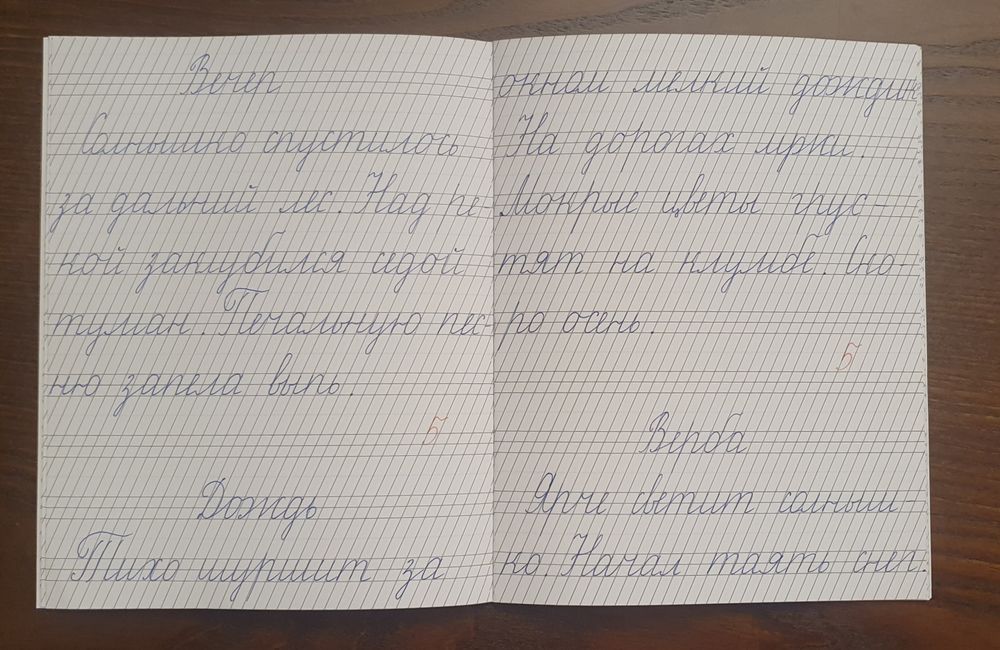 Вечер
Солнышко спустилось
за дальний лес. Над ре-
кой заклубился седой
туман. Печальную пес-
ню запела выпь.
5
Дождь
Тихо шуршит за
окном мелкий дождик.
На дорогах лужи.
Мокрые цветы грус-
тят на клумбе. Ско-
ро осень.
5
Верба
Ярче светит солныш-
ко. Начал таять снег.